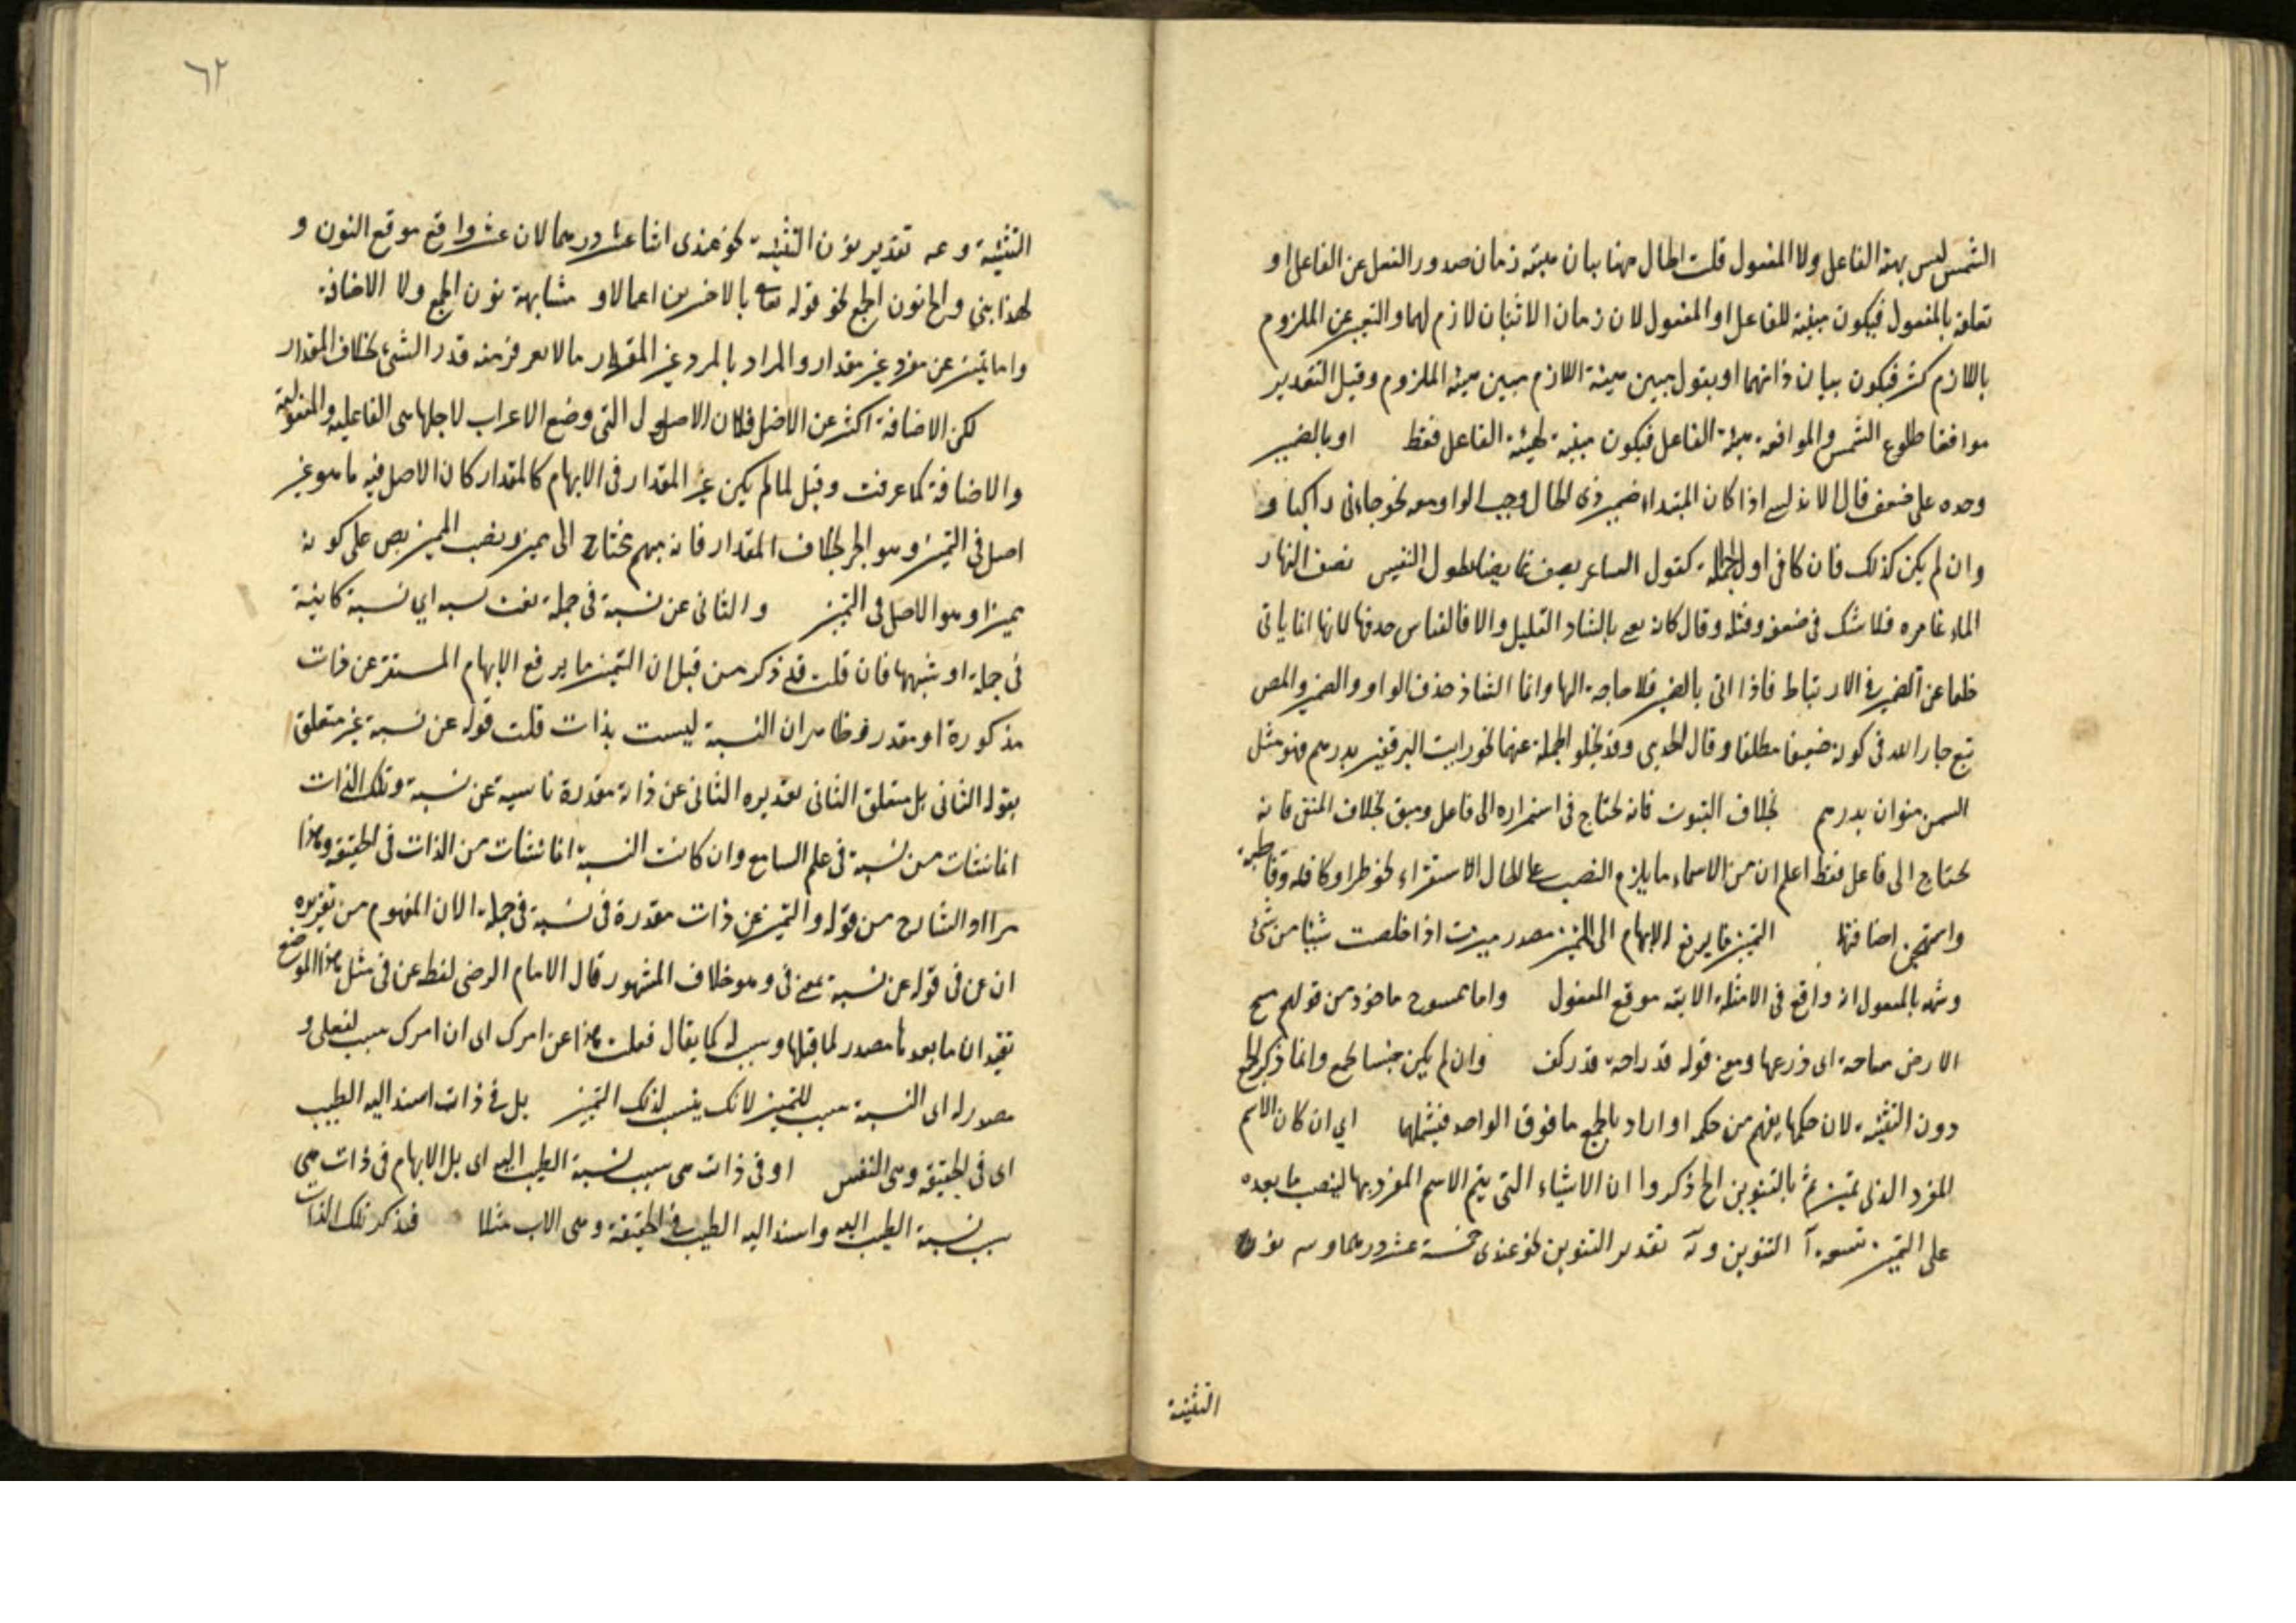 الشمس ليس بهيئة الفاعل ولا المفعول قلت الحال ههنا بيان هيئة زمان صدور الفعل عن الفاعل او
تعلقه بالمفعول فيكون مبينة للفاعل او المفعول لان زمان الاثبات لازم لهما والتعبير عن الملزوم
باللازم كثير فيكون بيان ذاتهما او يقول مبين هيئة اللازم مبين هيئة الملزوم وقيل التقدير
موافقا طلوع الشمس والموافقة هيئة الفاعل فيكون مبينة لهيئة الفاعل فقط او بالضمير
وحده على ضعف قال الاندلسي اذا كان المبتداء ضمير ذي الحال وجب الواو معه نحو جاءني راكبا و
وان لم يكن كذلك فان كا في اول الجملة كقول الساعر يصف نصف النهار
الماء غامره فلا شك في ضعفه وقلته وقال بالشاذ القليل والا فالقياس حذفها لانها انما ياتي
خلفا عن الضمير في الارتباط فاذا اتى بالضمير فلا حاجة اليها وانما الشاذ حذف الواو والضمير والمص
تبع جار الله في كونه ضعيفا مطلقا وقال وقد يخلو الجملة عنهما نحو رايت البر قفيز بدرهم فهو مثل
السمن منوان بدرهم بخلاف الثبوت فانه يحتاج في استمراره الى فاعل وسبق بخلاف المنفي فانه
يحتاج الى فاعل فقط اعلم ان من الاسماء ما يلزم النصب على الحال الاستقراء نحو طرا وكافة وقاطبة
واستهجن اضافتها التميز ما يرفع الابهام الى التميز مصدر ميزت اذا خلصت شيئا من شئ
وشبه بالمفعول انه واقع في الامثلة الاتية موقع المفعول واما ممسوح ماخوذ من قولهم مسح
الارض مساحة اى ذرعها ومع قوله قدر راحة قدر كف وان لم يكن جنسا جمع وانما ذكر الجمع
دون التثنية لان حكمها يفهم من حكمه او اراد بالجمع ما فوق الواحد فيشملهما اي ان كان الاسم
المفرد الذى تميز تم بالتنوين الخ ذكروا ان الاشياء التى يتم الاسم المفرد بها لينصب ما بعده
على التميز تسعة آ التنوين و تقدير التنوين نحو عندى خمسة عشر درهما و نون
التثنية
٦٢
التثنية و تقدير نون التثنية نحو عندى اثنا عشر درهما لان عشر واقع موقع النون و
لهذا بني نون الجمع نحو قوله تعالى بالاخسرين اعمالا و مشابهة نون الجمع ولا الاضافة
واما تميز عن مفرد غير مقدار والمراد بالمفرد غير المقدار ما لا يعرف منه قدر الشئ بخلاف المقدار
لكن الاضافة اكثر عن الاصل فلان الاصول التى وضع الاعراب لاجلها هى الفاعلية والمفعولية
والاضافة كما عرفت وقيل لما لم يكن غير المقدار في الابهام كالمقدار كان الاصل فيه ما هو غير
اصل في التميز وهو الجر بخلاف المقدار فانه مبهم يحتاج الى مميز ونصب المميز نص على كونه
مميزا وهو الاصل في التميز والثانى عن نسبة في جملة اي نسبة كاينة
في جملة او شبهها فان قلت قد ذكر من قبل ان التميز ما يرفع الابهام المستقر عن ذات
مذكورة او مقدرة وظاهر ان النسبة ليست بذات قلت قوله عن نسبة غير متعلق
بقوله الثانى بل متعلق الثانى تقديره الثانى عن ذات مقدرة ناسية عن نسبة وتلك الذات
انما نشات من نسبة في علم السامع وان كانت النسبة انما نشات من الذات في الحقيقة وهذا
مراد الشارح من قوله والتميز عن ذات مقدرة في نسبة في جملة الان المفهوم من تقريره
ان عن في قوله عن نسبة بمعنى في وهو خلاف المشهور قال الامام الرضى لفظ عن في مثل هذا الموضع
يفيد ان ما بعدها مصدر لما قبلها وسبب له كما يقال فعلت هذا عن امرك اى ان امرك سبب لفعلى و
مصدر له اى النسبة سبب للتميز لانك ينسب لذلك التميز بل في ذات اسند اليه الطيب
اى في الحقيقة وهى النفس او في ذات هى سبب نسبة الطيب اليه اى بل الابهام في ذات هي
سبب نسبة الطيب اليه واسند اليه الطيب في الحقيقة وهى الاب مثلا فذكر تلك الذات